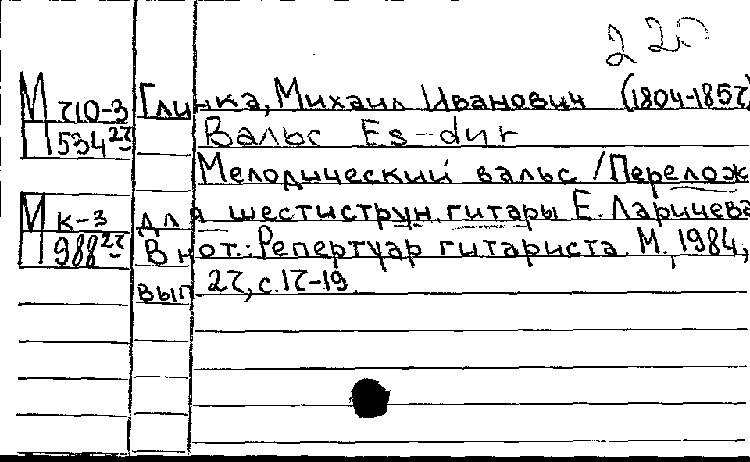 220
М 710-3 Глинка, Михаил Иванович (1804-1857)
П 534 27 Вальс Es-dur
Мелодический вальс / Перелож.
М к-3 для шестиструн. гитары Е. Ларичева
П 988 27 В нот.: Репертуар гитариста. М., 1984,
вып 27, с. 17-19.